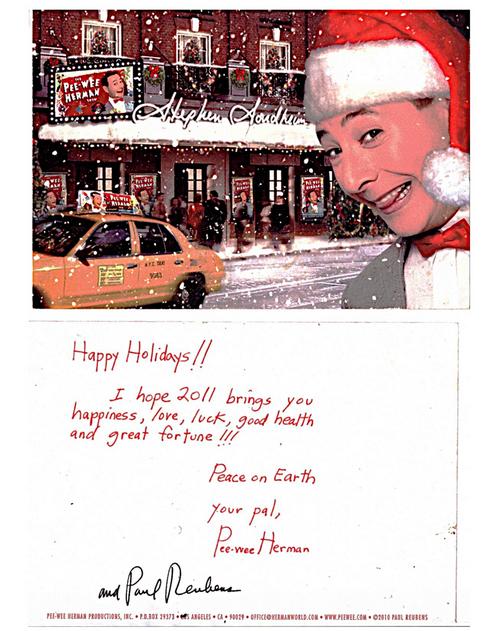 THE
PEE-WEE
HERMAN
SHOW
Stephen Sondheim
PEE-WEE
N.Y.C. TAXI
Happy Holidays!!
I hope 2011 brings you
happiness, love, luck, good health
and great fortune!!!
Peace on Earth
your pal,
Pee-wee Herman
and Paul Reubens
PEE-WEE HERMAN PRODUCTIONS, INC. • P.O.BOX 29373 • LOS ANGELES • CA • 90029 • OFFICE@HERMANWORLD.COM • WWW.PEEWEE.COM • ©2010 PAUL REUBENS